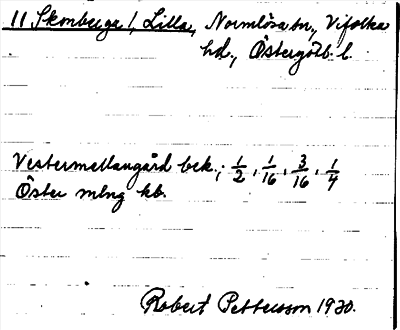 11 Skonberga 1, Lilla, Normlösa sn, Vifolka
hd., Östergötl. l.
Vestermellangård bek.; 1/2, 1/16, 3/16, 1/4
Öster mlng kb.
Robert Pettersson 1930.